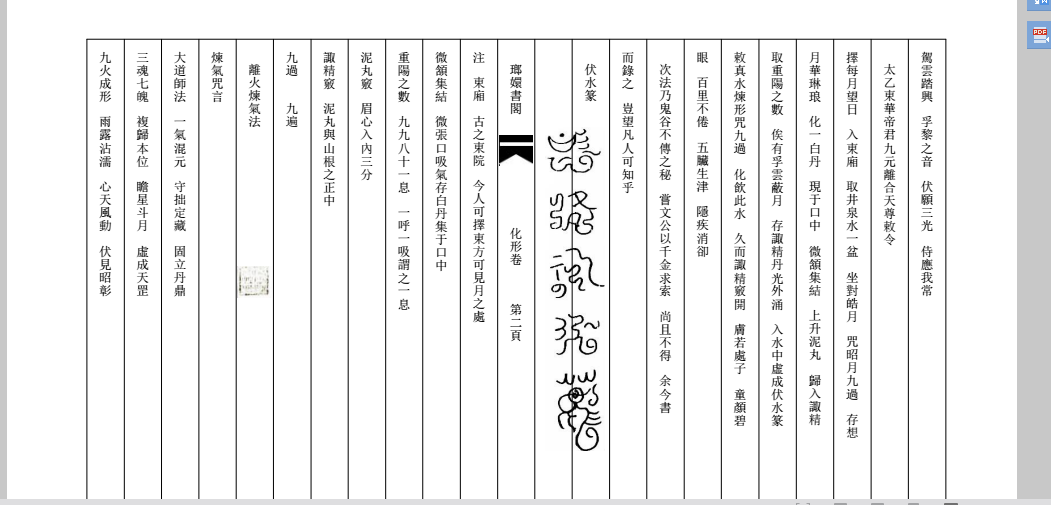 駕雲踏興　孚黎之音　伏願三光　侍應我常
太乙東華帝君九元離合天尊敕令
擇每月望日　入東廂　取井泉水一盆　坐對皓月　咒昭月九過　存想
月華琳琅　化一白丹　現于口中　微頷集結　上升泥丸　歸入諏精
取重陽之數　俟有孚雲蔽月　存諏精丹光外涌　入水中虛成伏水篆
敕真水煉形咒九過　化飲此水　久而諏精竅開　膚若處子　童顏碧
眼　百里不倦　五臟生津　隱疾消卻
次法乃鬼谷不傳之秘　嘗文公以千金求索　尚且不得　余今書
而錄之　豈望凡人可知乎
伏水篆
瑯嬛書閣
化形卷
第二頁
注　東廂　古之東院　今人可擇東方可見月之處
微頷集結　微張口吸氣存白丹集于口中
重陽之數　九九八十一息　一呼一吸謂之一息
泥丸竅　眉心入內三分
諏精竅　泥丸與山根之正中
九過　九遍
離火煉氣法
煉氣咒言
大道師法　一氣混元　守拙定藏　固立丹鼎
三魂七魄　複歸本位　瞻星斗月　虛成天罡
九火成形　雨露沾濡　心天風動　伏見昭彰
PDF